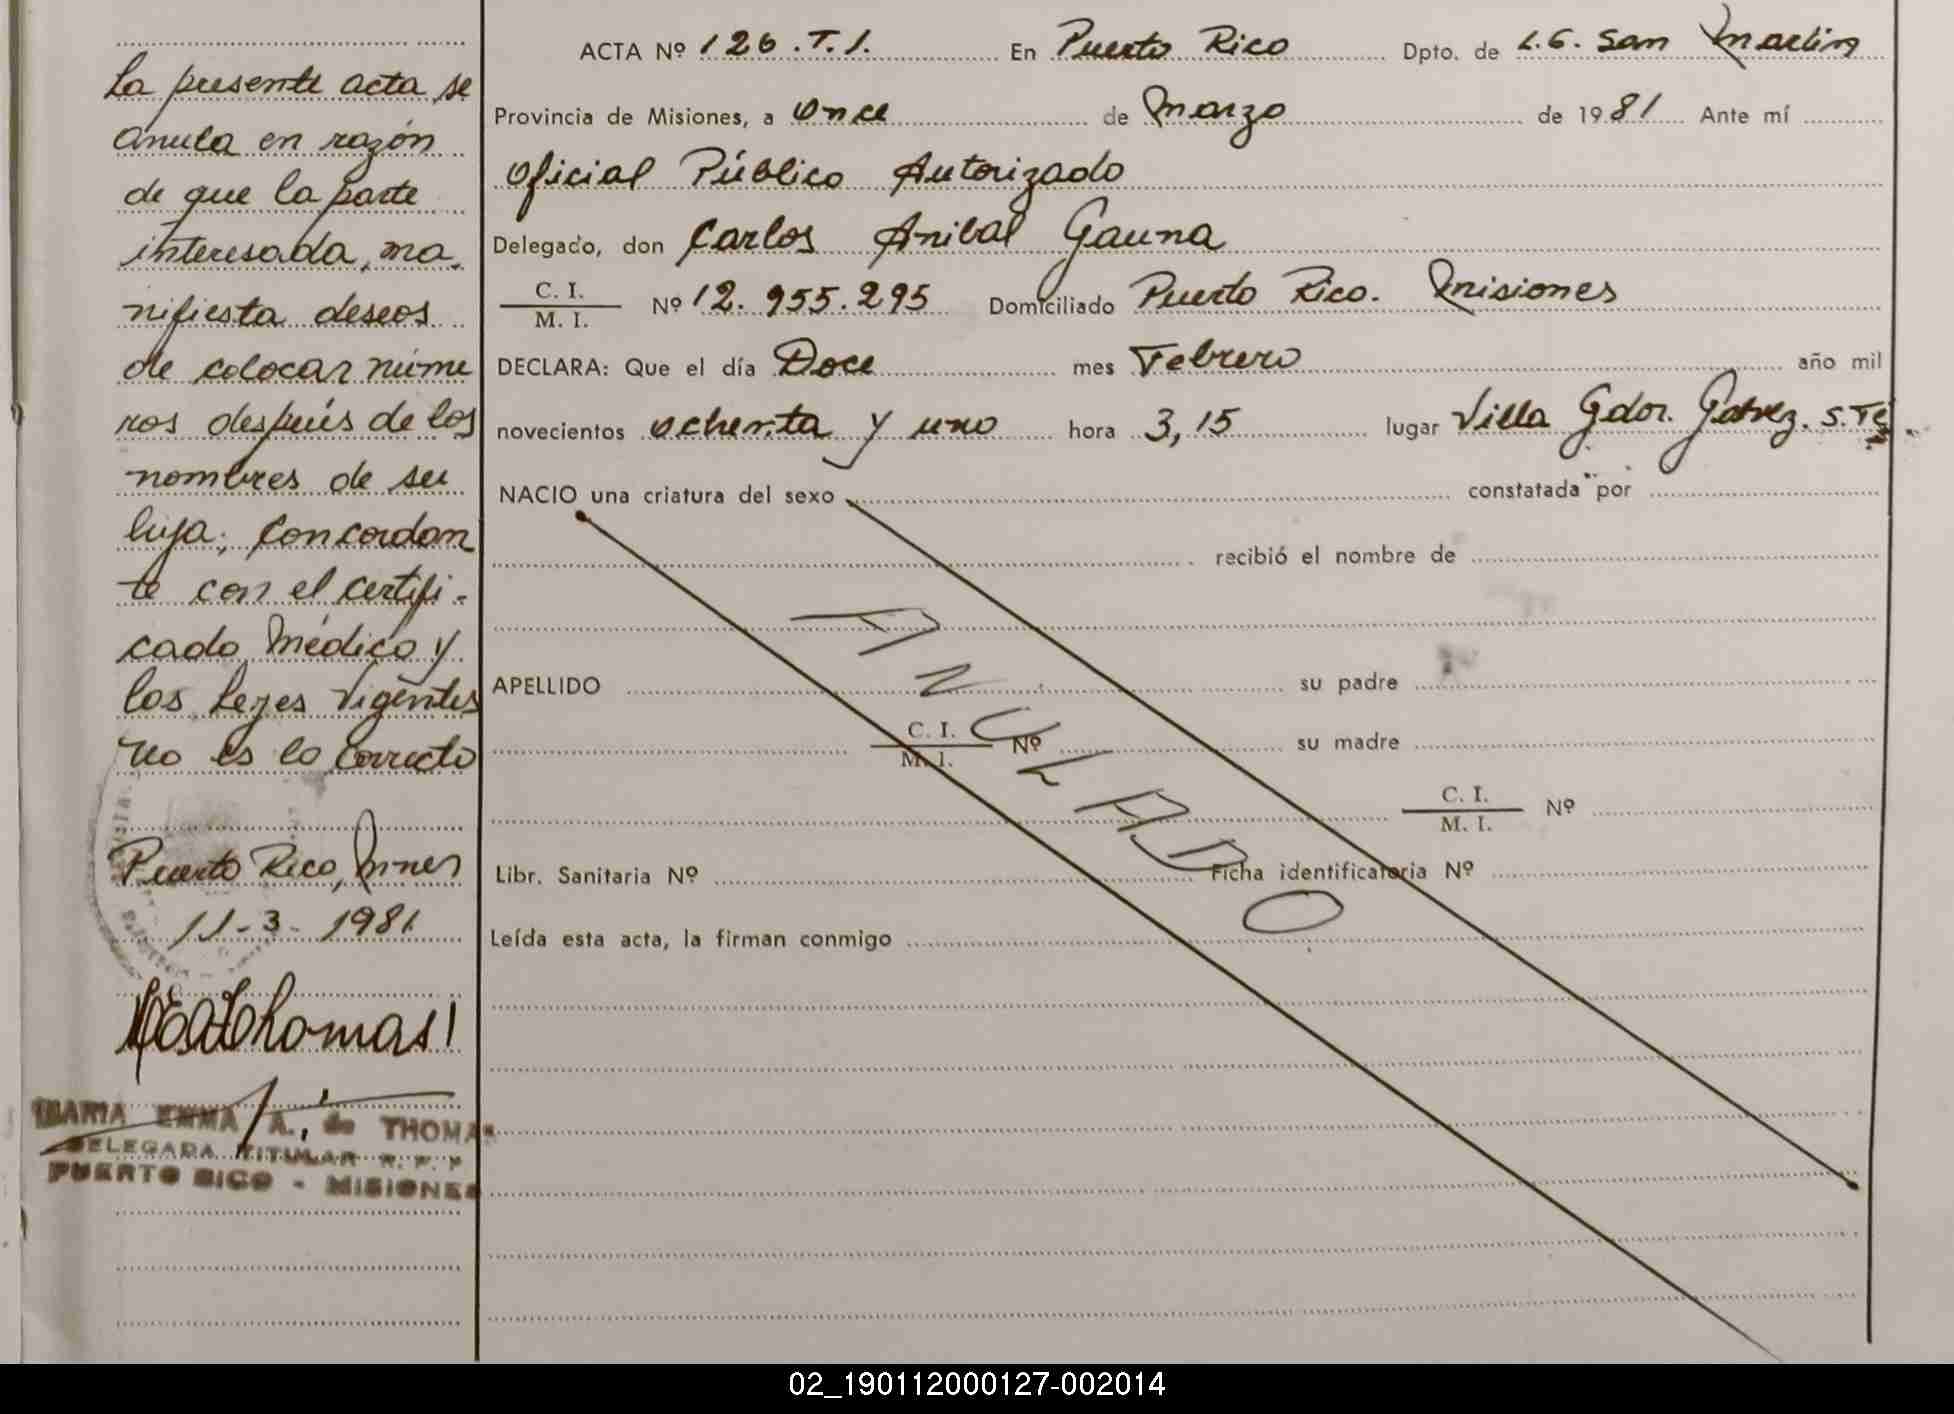 La presente acta se
anula en razón
de que la parte
interesada, ma-
nifiesta deseos
de colocar núme
ros después de los
nombres de su
hija; concordan
te con el certifi-
cado Médico y
las Leyes Vigentes
no es lo correcto
Puerto Rico, Mnes
11-3-1981
MARIA EMMA A. de THOMAS
DELEGADA TITULAR R. P. P
PUERTO RICO - MISIONES
ACTA Nº 126.T.I. En Puerto Rico Dpto. de L.G. San Martin
Provincia de Misiones, a once de Marzo de 1981 Ante mí
Oficial Público Autorizado
Delegado, don Carlos Anibal Gauna
C. I.
M. I. Nº 12.955.295 Domiciliado Puerto Rico. Misiones
DECLARA: Que el día Doce mes Febrero año mil
novecientos ochenta y uno hora 3,15 lugar Villa Gdor. Galvez. S. Fe
NACIO una criatura del sexo constatada por
recibió el nombre de
APELLIDO su padre
C. I.
M. I. Nº su madre
C. I.
M. I. Nº
Libr. Sanitaria Nº Ficha identificatoria Nº
Leída esta acta, la firman conmigo
ANULADO
02_190112000127-002014